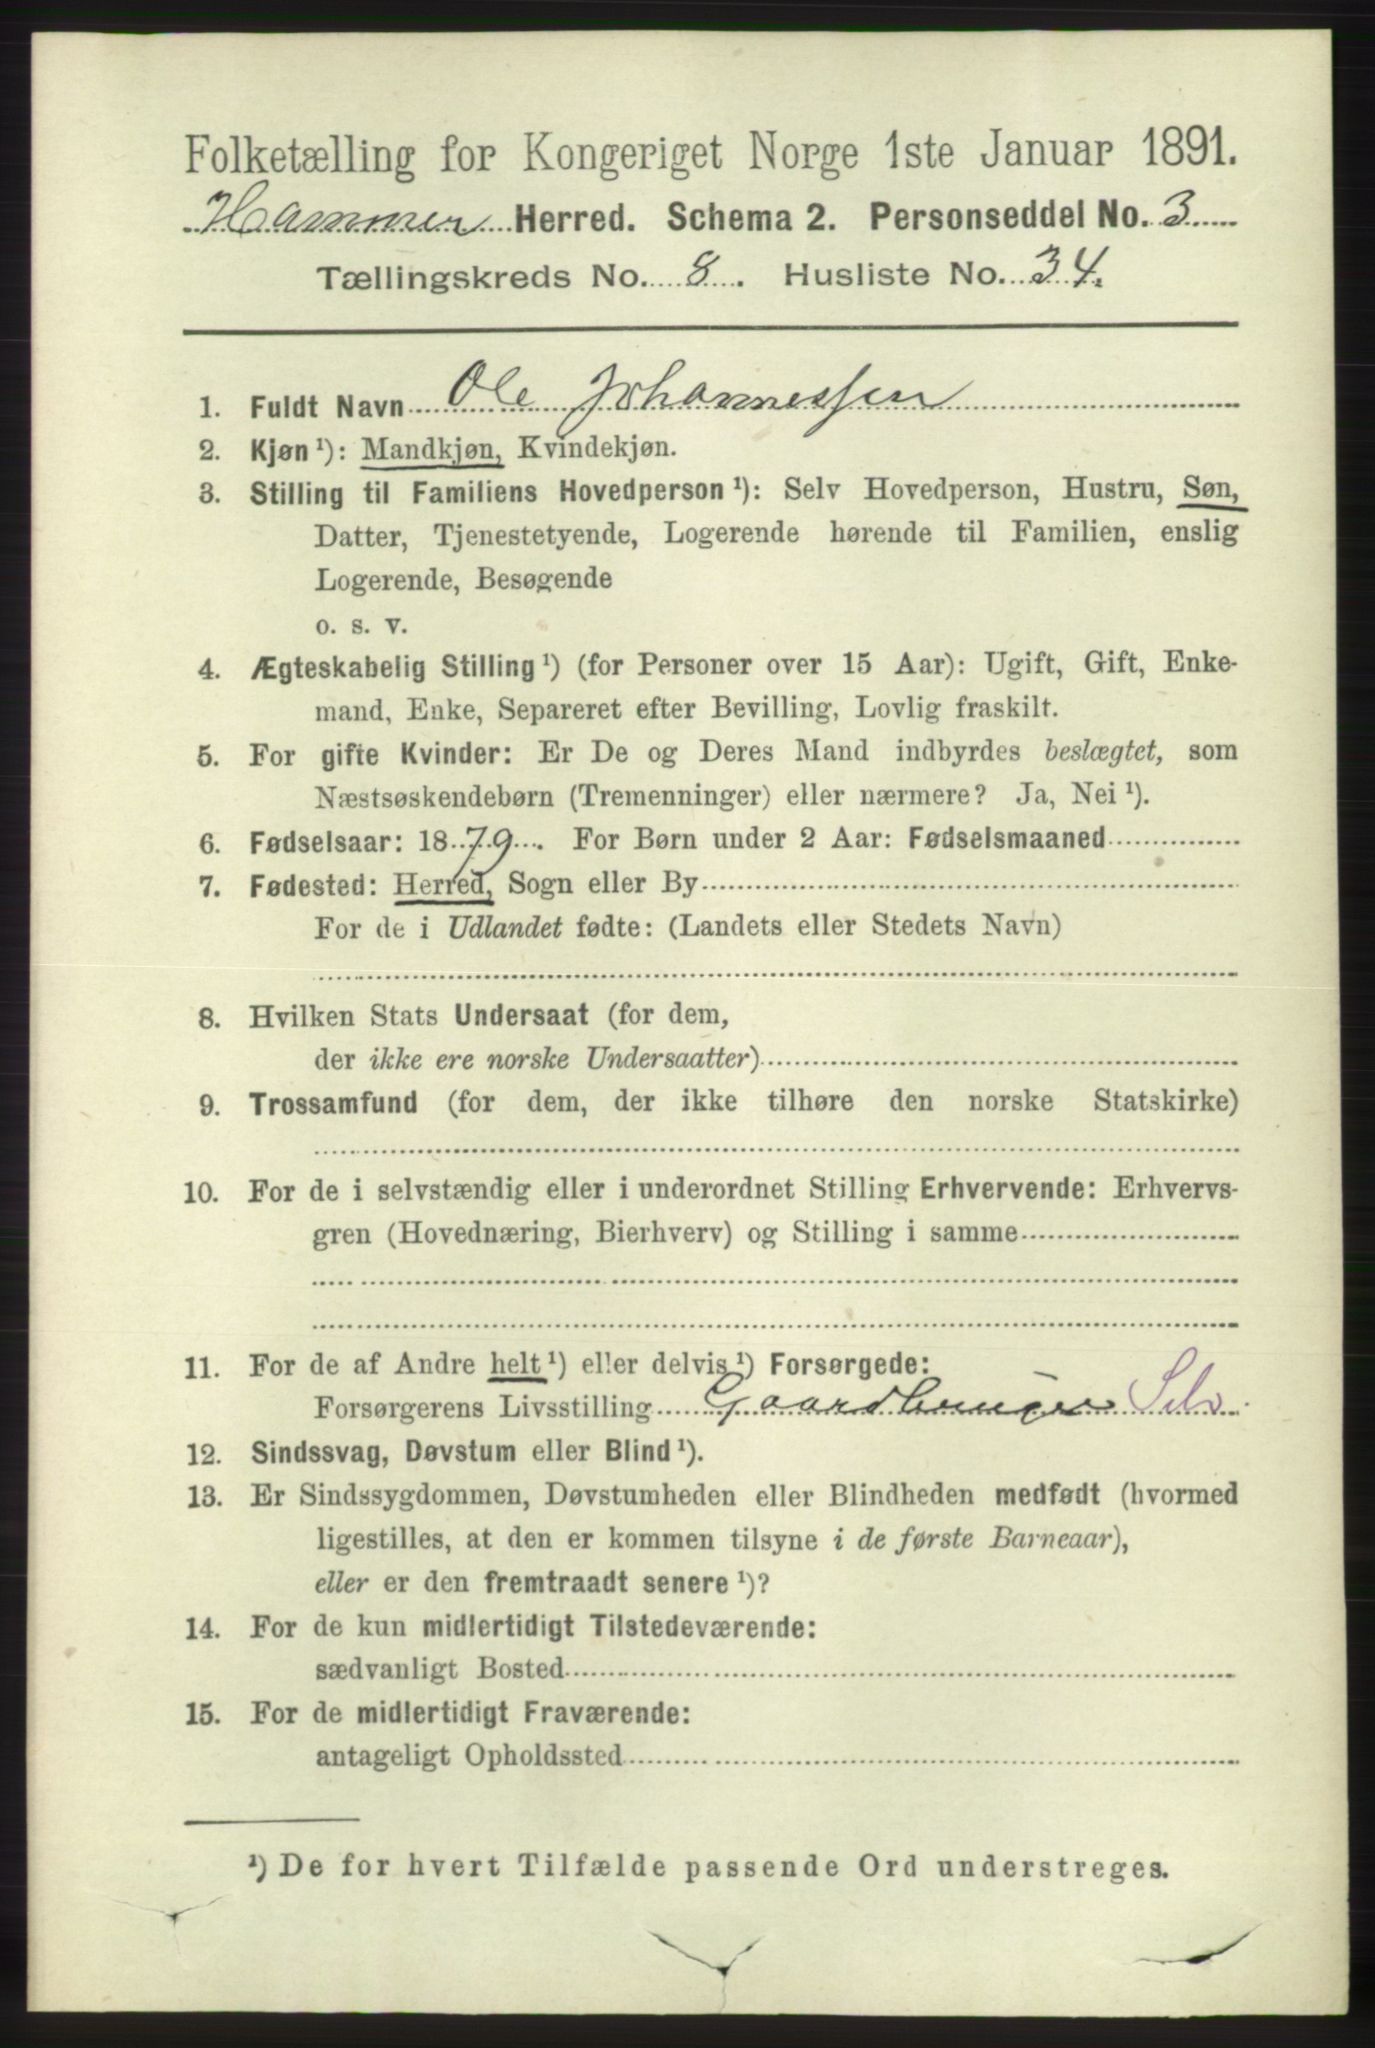 Folketælling for Kongeriget Norge 1ste Januar 1891.
Hammer Herred. Schema 2. Personseddel No. 3
Tællingskreds No. 8. Husliste No. 34.
1. Fuldt Navn Ole Johannessen
2. Kjøn ¹): Mandkjøn, Kvindekjøn.
3. Stilling til Familiens Hovedperson ¹): Selv Hovedperson, Hustru, Søn,
Datter, Tjenestetyende, Logerende hørende til Familien, enslig
Logerende, Besøgende
o. s. v.
4. Ægteskabelig Stilling ¹) (for Personer over 15 Aar): Ugift, Gift, Enke-
mand, Enke, Separeret efter Bevilling, Lovlig fraskilt.
5. For gifte Kvinder: Er De og Deres Mand indbyrdes beslægtet, som
Næstsøskendebørn (Tremenninger) eller nærmere? Ja, Nei ¹).
6. Fødselsaar: 1879. For Børn under 2 Aar: Fødselsmaaned
7. Fødested: Herred, Sogn eller By
For de i Udlandet fødte: (Landets eller Stedets Navn)
8. Hvilken Stats Undersaat (for dem,
der ikke ere norske Undersaatter)
9. Trossamfund (for dem, der ikke tilhøre den norske Statskirke)
10. For de i selvstændig eller i underordnet Stilling Erhvervende: Erhvervs-
gren (Hovednæring, Bierhverv) og Stilling i samme
11. For de af Andre helt ¹) eller delvis ¹) Forsørgede:
Forsørgerens Livsstilling Gaardbruger Selv
12. Sindssvag, Døvstum eller Blind ¹).
13. Er Sindssygdommen, Døvstumheden eller Blindheden medfødt (hvormed
ligestilles, at den er kommen tilsyne i de første Barneaar),
eller er den fremtraadt senere ¹)?
14. For de kun midlertidigt Tilstedeværende:
sædvanligt Bosted
15. For de midlertidigt Fraværende:
antageligt Opholdssted
¹) De for hvert Tilfælde passende Ord understreges.